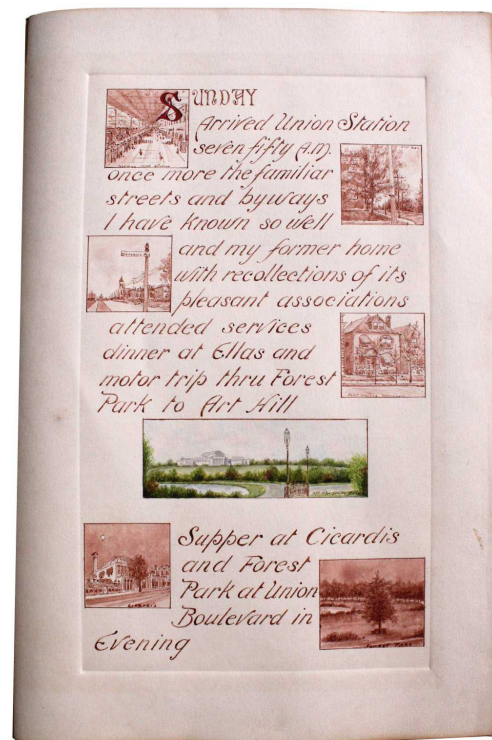 SUNDAY
Arrived Union Station
seven fifty A.M.
once more the familiar
streets and byways
I have known so well
and my former home
with recollections of its
pleasant associations
attended services
dinner at Ellas and
motor trip thru Forest
Park to Art Hill
Supper at Cicardis
and Forest
CICARDIS
Park at Union
Boulevard in
FOREST PARK
Evening